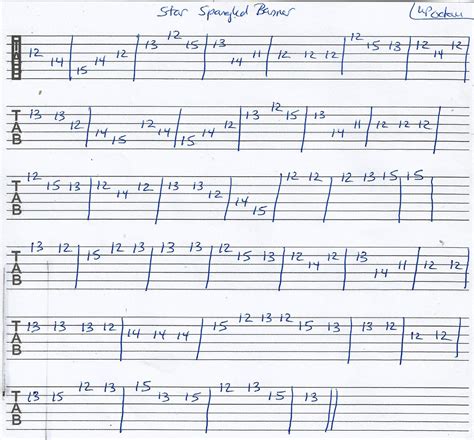 Star Spangled Banner 8va octave
TAB 12 14 15 14 12 13 12 15 13 14 11 12 12 12 12 15 13 12
TAB 13 13 12 14 15 12 14 15 14 12 13 12 15 13 14 11 12 12 12
TAB 12 15 13 12 14 12 13 13 12 14 15 12 12 12 13 15 15
TAB 13 13 12 15 12 13 13 13 12 15 13 12 14 12 13 14 11 12 12
TAB 13 13 13 12 14 14 14 15 12 13 12 15 13 13 12 13 14 12 12
TAB 13 15 12 13 15 13 15 12 15 13